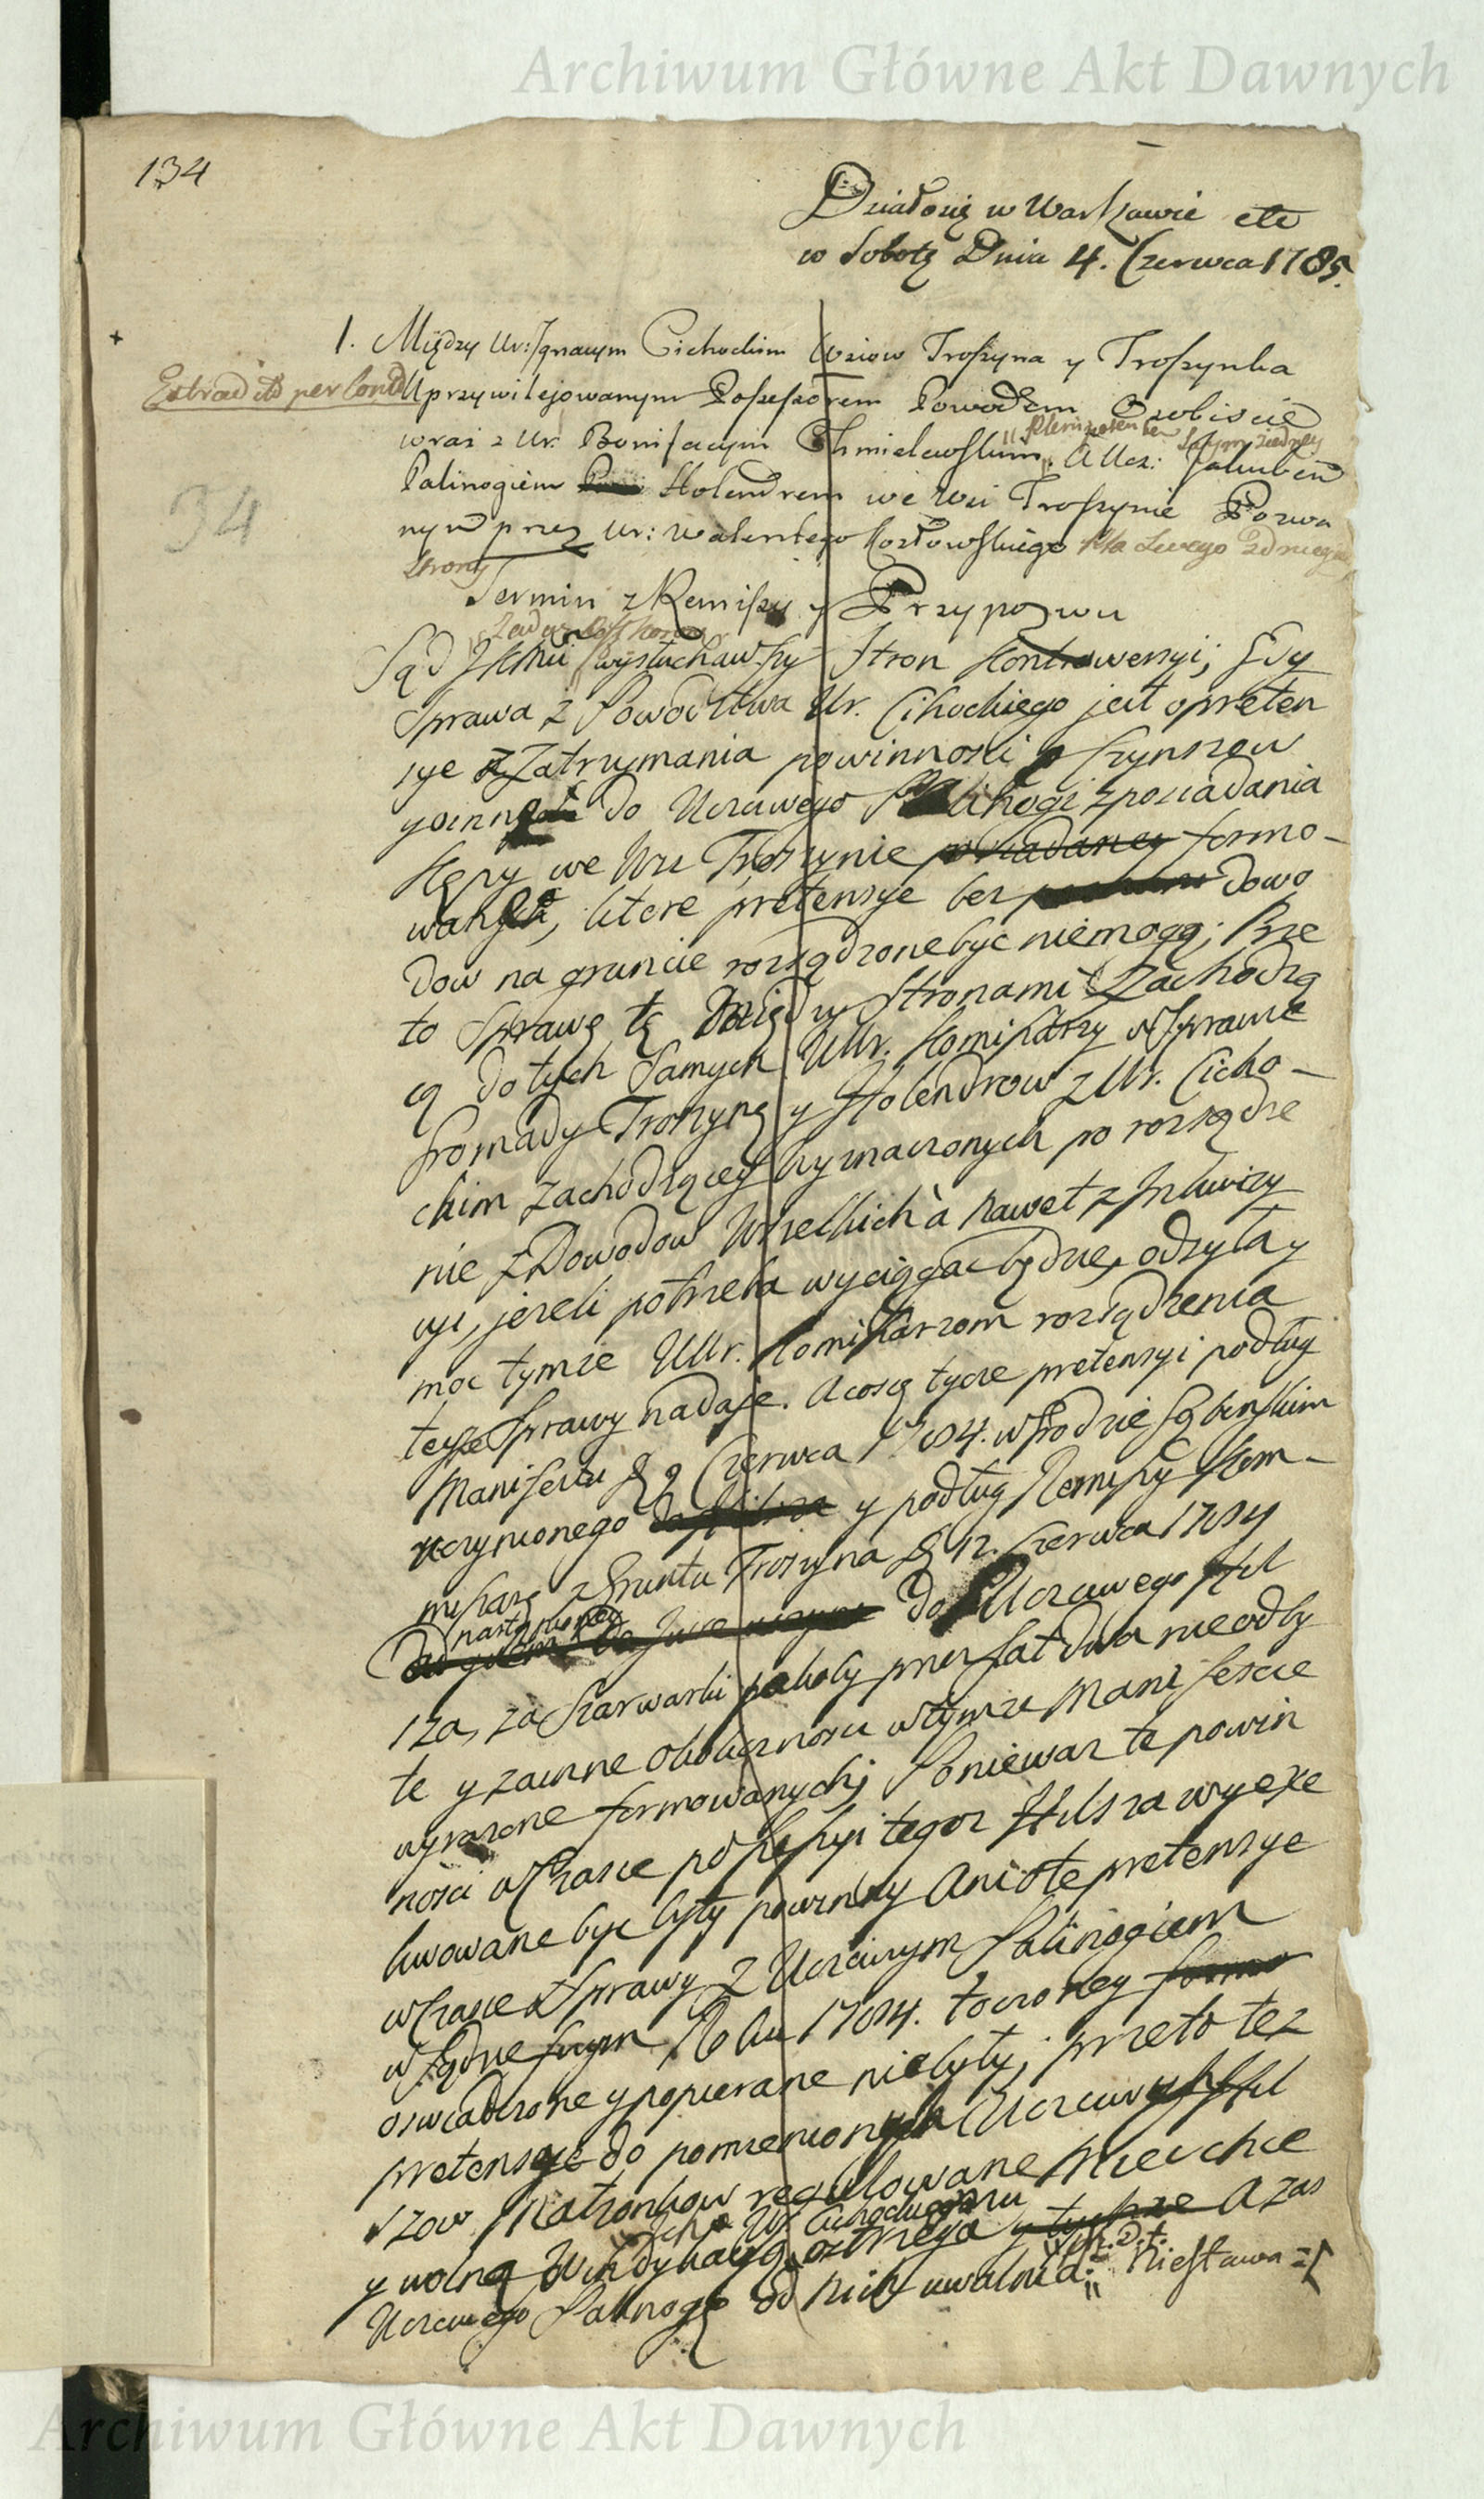 Archiwum Główne Akt Dawnych
134
Działosię w Warszawie etc
w Sobotę Dnia 4. Czerwca 1785.
1. Między Ur: Ignacym Cichockim Wsiow Troszyna y Troszynka
Extradited per Cond
Uprzywilejowanym Possessorem Powodem Osobiscie
wraz z Ur. Bonifacym Chmielewskim A Ucz: Jakubem
34
Palinogiem Holendrem we Wsi Troszynie Pozwa
nym przez Ur: Walentego Kozłowskiego
strony
Termin z Remissy y Przypozwu
Sąd J K Mci wysłuchawszy Stron Kontrowersyi; Gdy
Sprawa z Powodztwa Ur. Cihockiego jest o preten
sye Zatrzymania powinnosci Czynszow
y innych do Uczciwego Palinogi z posiadania
Kępy we Wsi Troszynie posiadaney formo-
wanych, ktore pretensye bez dowo
dow na gruncie rozsądzone być niemogą; Prze
to Sprawę tę między Stronami Zachodzą
cą do tych Samych UUr. Komissarzy w Sprawie
Gromady Troszyna y Holendrow z Ur. Cicho-
ckim zachodzącey wyznaczonych po rozsądze
nie z Dowodow Wszelkich à nawet z Inkwizy
cyi, jezeli potrzeba wyciągac będzie, odsyła y
moc tymze UUr. Komissarzom rozsądzenia
teyze Sprawy nadaje. A co się tycze pretensyi podług
Manifestu 9 Czerwca 1784. w Grodzie Gąbinskim
uczynionego y podług Remissy Kom-
missarz z Gruntu Troszyna 12. Czerwca 1784
nastąpioney
do Uczciwego Hil
sza, za Szarwarki pakoły przez Lat dwa nieodby
te y za inne okolicznosci w tymze Manifescie
wyrazone formowanych; Poniewaz te powin
nosci w Czasie possessyi tegoz Hilsza wyexe
kwowane byc były powinny Ani o te pretensye
w Czasie Sprawy z Uczciwym Palinogiem
w Sądzie swym Roku 1784. toczoney formo
oswiadczone y popierane niebyły; przeto tez
pretensye do pomienionych Uczciwych Hil
szow Małzonkow regulowane miec chce
Ur. Cichockiemu
y wolną Windykacyą ostrzega y tychze A zas
Uczciwego Palinogę od nich uwalnia. Niestawa
Archiwum Główne Akt Dawnych